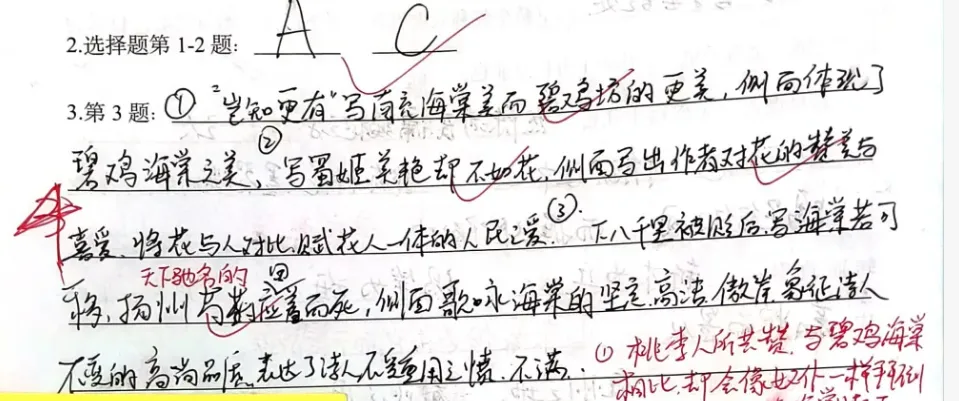 2.选择题第 1-2 题: A C
3.第 3 题: ① "岂知更有"写南充海棠美而碧鸡坊的更美, 侧面体现了
碧鸡海棠之美、②写蜀姬美艳却不如花, 侧面写出作者对花的赞美与
喜爱、将花与人对比, 赋花人一体的人民之爱. ③. 八千里被贬后, 写海棠若可
移, 扬州芍药应羞而死, 侧面歌咏海棠的坚定、高洁、傲岸, 象征诗人
天下驰名的 ④
不变的高尚品质, 表达了诗人不受重用之愤、不满.
① 桃李人所共赞, 与碧鸡海棠
相比, 却会像奴仆一样